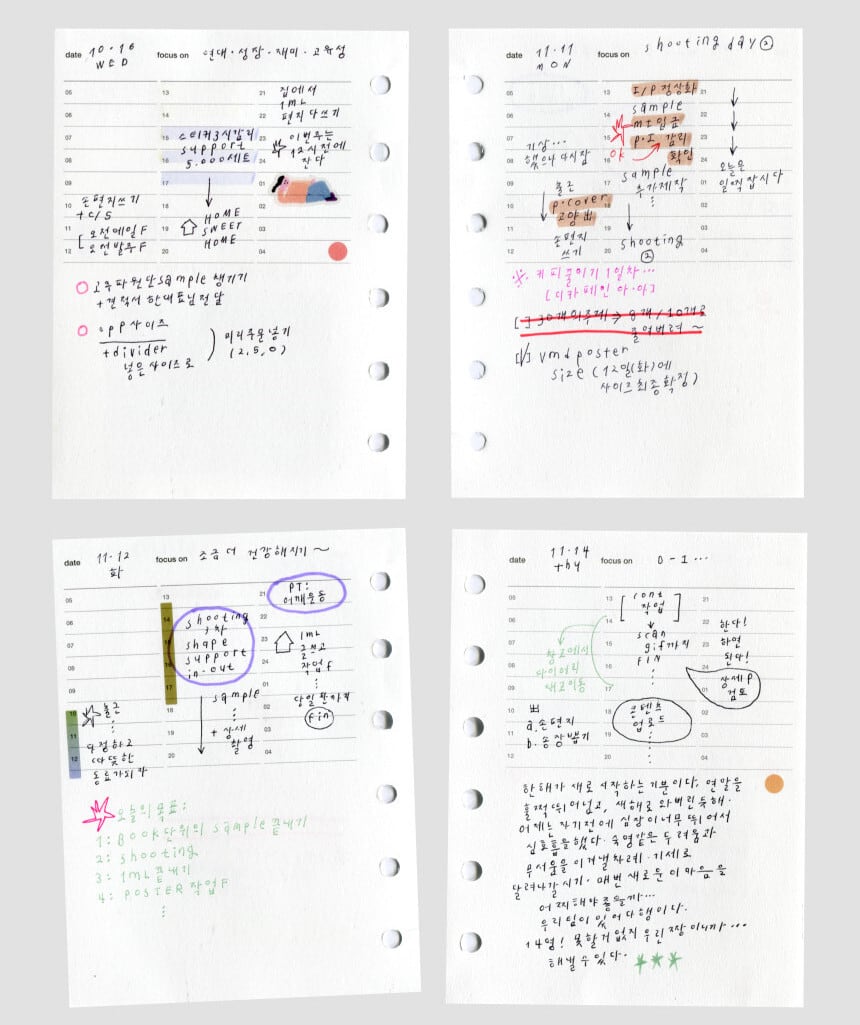 date 10·16 WED focus on 연대·성장·재미·고유성
05 13 21 집에서
06 14 22 1mL 편지 다쓰기
07 15 스티커 3시 감리 23 이번주는
08 16 support 5.000세트 24 12시 전에 잔다
09 17 01
10 손편지쓰기 + C/S 18 HOME 02
11 [ 오전메일 F 19 SWEET 03
12 오전발주 F 20 HOME 04
고주파원단 sample 챙기기
+견적서 한대표님 전달
opp 사이즈
+divider
넣은 사이즈로
미리주문넣기
(2, 5, 0)
date 11·11 MON focus on shooting day ②
05 13 I/P 정상화 21
06 14 sample 22
07 기상... 15 MI입금 23
08 했으나 다시잠 16 OK P·I 감리 확인 24 오늘은
09 출근 17 sample 추가제작 01 일찍 잡시다
10 p·cover 18 02
11 고양 出 19 03
12 손편지 쓰기 20 shooting ② 04
※ 커피줄이기 1일차...
[디카페인 아·아]
[ ] 30개의 주제 → 8개/10개로
줄여버려 ~
[✓] vmd poster
size (12일(화)에
사이즈 최종확정)
date 11·12 화 focus on 조금 더 건강해지기 ~
05 13 21 PT: 어깨운동
06 14 shooting 22
07 15 shape 23 1mL
08 16 support 24 글쓰고
09 17 in·out 작업 F
10 출근 18 sample 02
11 다정하고 19 + 상세 03 fin
12 따뜻한 20 촬영 04
동료가 되자
오늘의 목표:
1: BOOK단위의 sample 끝내기
2: shooting
3: 1mL 끝내기
4: POSTER 작업 F
date 11·14 thu focus on 0-1...
05 13 [ cont 작업 ] 21
06 14 22 한다!
07 창고에서 15 scan 23 하면
08 다이어리 16 gif까지 24 된다!
09 재고이동 17 FIN 01 상세P 검토
10 出 18 콘텐츠 02
11 a. 손편지 19 업로드 03
12 b. 송장뽑기 20 04
한해가 새로 시작하는 기분이다. 연말을
훌쩍 뛰어넘고, 새해로 와버린 듯해.
어제는 자기전에 심장이 너무 뛰어서
심호흡을 했다. 숙명같은 두려움과
무서움을 이겨낼 차례. 기세로
달려나갈 시기. 매번 새로운 이 마음을
어찌해야 좋을까...
우리 팀이 있어 다행이다.
14명! 못할 거 없지 우린 짱이니까...
해낼 수 있다.